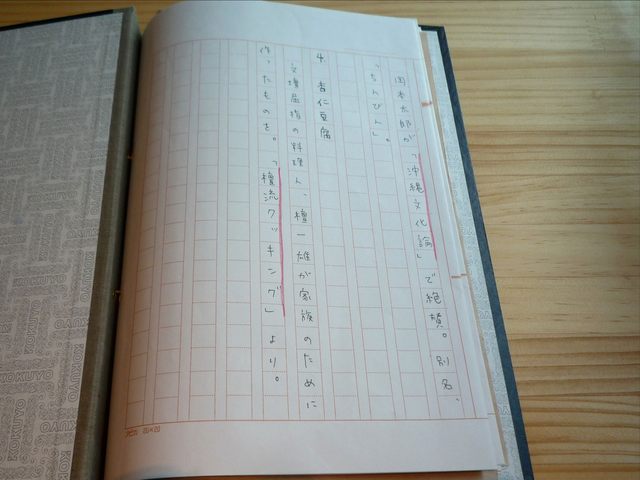 岡本太郎が「沖縄文化論」で絶賛。別名、
「ちんびん」。
4 杏仁豆腐
文壇屈指の料理人、檀一雄が家族のために
作ったものを。「檀流クッキング」より。
20×20
KOKUYO